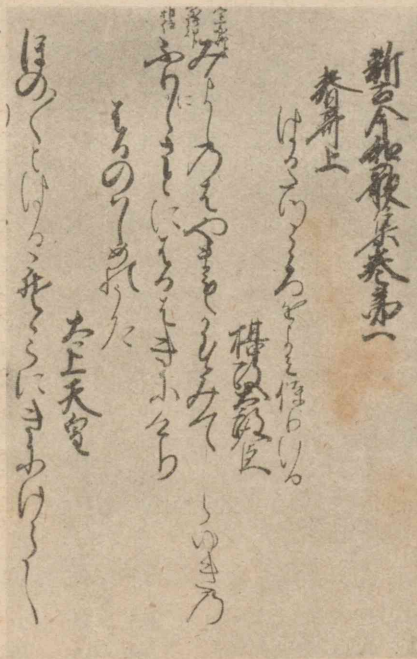 新古今和歌集巻第一
春哥上
はるたつこゝろをよみ侍りける
摂政太政大臣
みよしのはやまもかすみてしらゆきの
ふりにしさとにはるはきにけり
はるのはしめのうた
太上天皇
ほの〳〵とはるこそそらにきにけらし